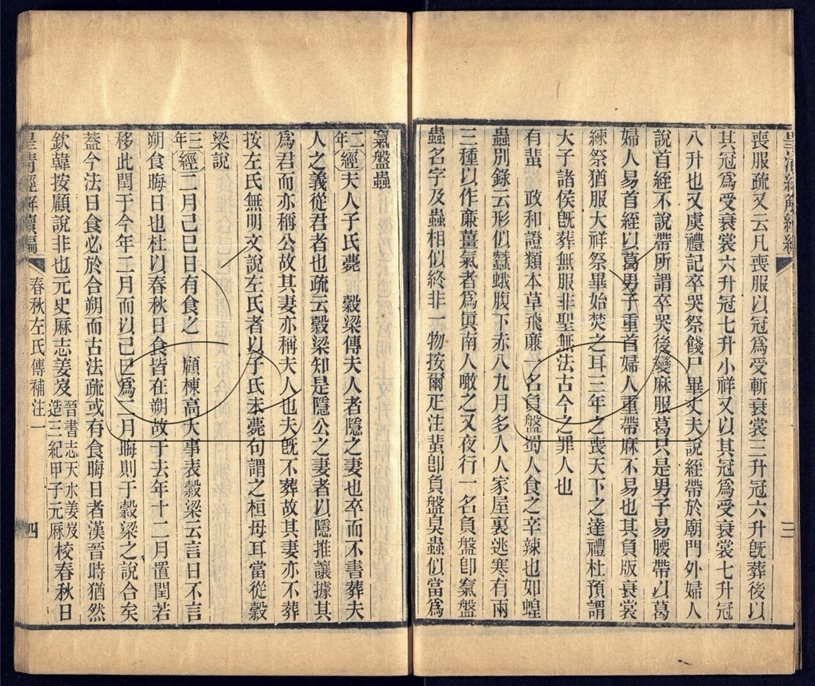 喪服疏又云凡喪服以冠爲受斬衰裳三升冠六升旣葬後以
其冠爲受衰裳六升冠七升小祥又以其冠爲受衰裳七升冠
八升也又虞禮記卒哭祭餞尸畢丈夫說絰帶於廟門外婦人
說首絰不說帶所謂卒哭後變麻服葛只是男子易腰帶以葛
婦人易首絰以葛男子重首婦人重帶麻不易也其負版衰裳
練祭猶服大祥祭畢始焚之耳三年之喪天下之達禮杜預謂
天子諸侯旣葬無服非聖無法古今之罪人也
有蜚 政和證類本草飛廉一名負盤蜀人食之辛辣也如蝗
蟲別錄云形似蠶蛾腹下赤八九月多人人家屋裏逃寒有兩
三種以作廉薑氣者爲眞南人噉之又夜行一名負盤卽䘃盤
蟲名字及蟲相似終非一物按爾疋注蜚卽負盤臭蟲似當爲
皇淸經解續編
三
䘃盤蟲
二年經夫人子氏薨 穀梁傳夫人者隱之妻也卒而不書葬夫
人之義從君者也疏云穀梁知是隱公之妻者以隱推讓據其
爲君而亦稱公故其妻亦稱夫人也夫旣不葬故其妻亦不葬
按左氏無明文說左氏者以子氏未薨句謂之桓母耳當從穀
梁說
三年經二月己巳日有食之 顧棟高大事表穀梁云言日不言
朔食晦日也杜以春秋日食皆在朔故于去年十二月置閏若
移此閏于今年二月而以己巳爲二月晦則于穀梁之說合矣
葢今法日食必於合朔而古法疏或有食晦日者漢晉時猶然
欽韓按顧說非也元史厤志姜岌晉書志天水姜岌造三紀甲子元厤校春秋日
皇淸經解續編 春秋左氏傳補注一 四